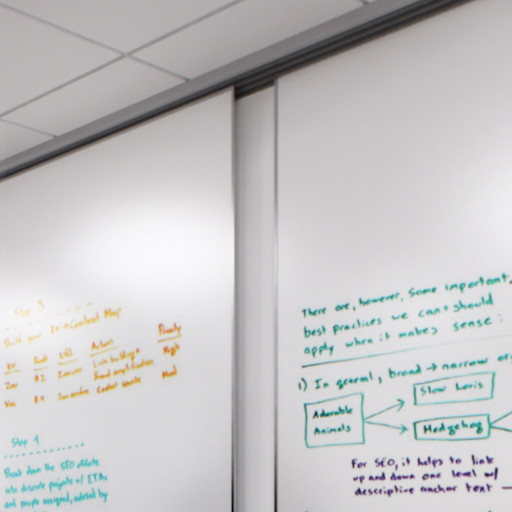 Step 3
Build your KW → Content Map
KW Rank URL Action Priority
High
Med
Step 4
Break down the SEO efforts
into discrete projects w/ ETAs
and people assigned,
There are, however, some important
best practices we can + should
apply when it makes sense:
1) In general, broad → narrow
Adorable
Animals
Slow Loris
Hedgehog
For SEO, it helps to link
up and down one level w/
descriptive anchor text